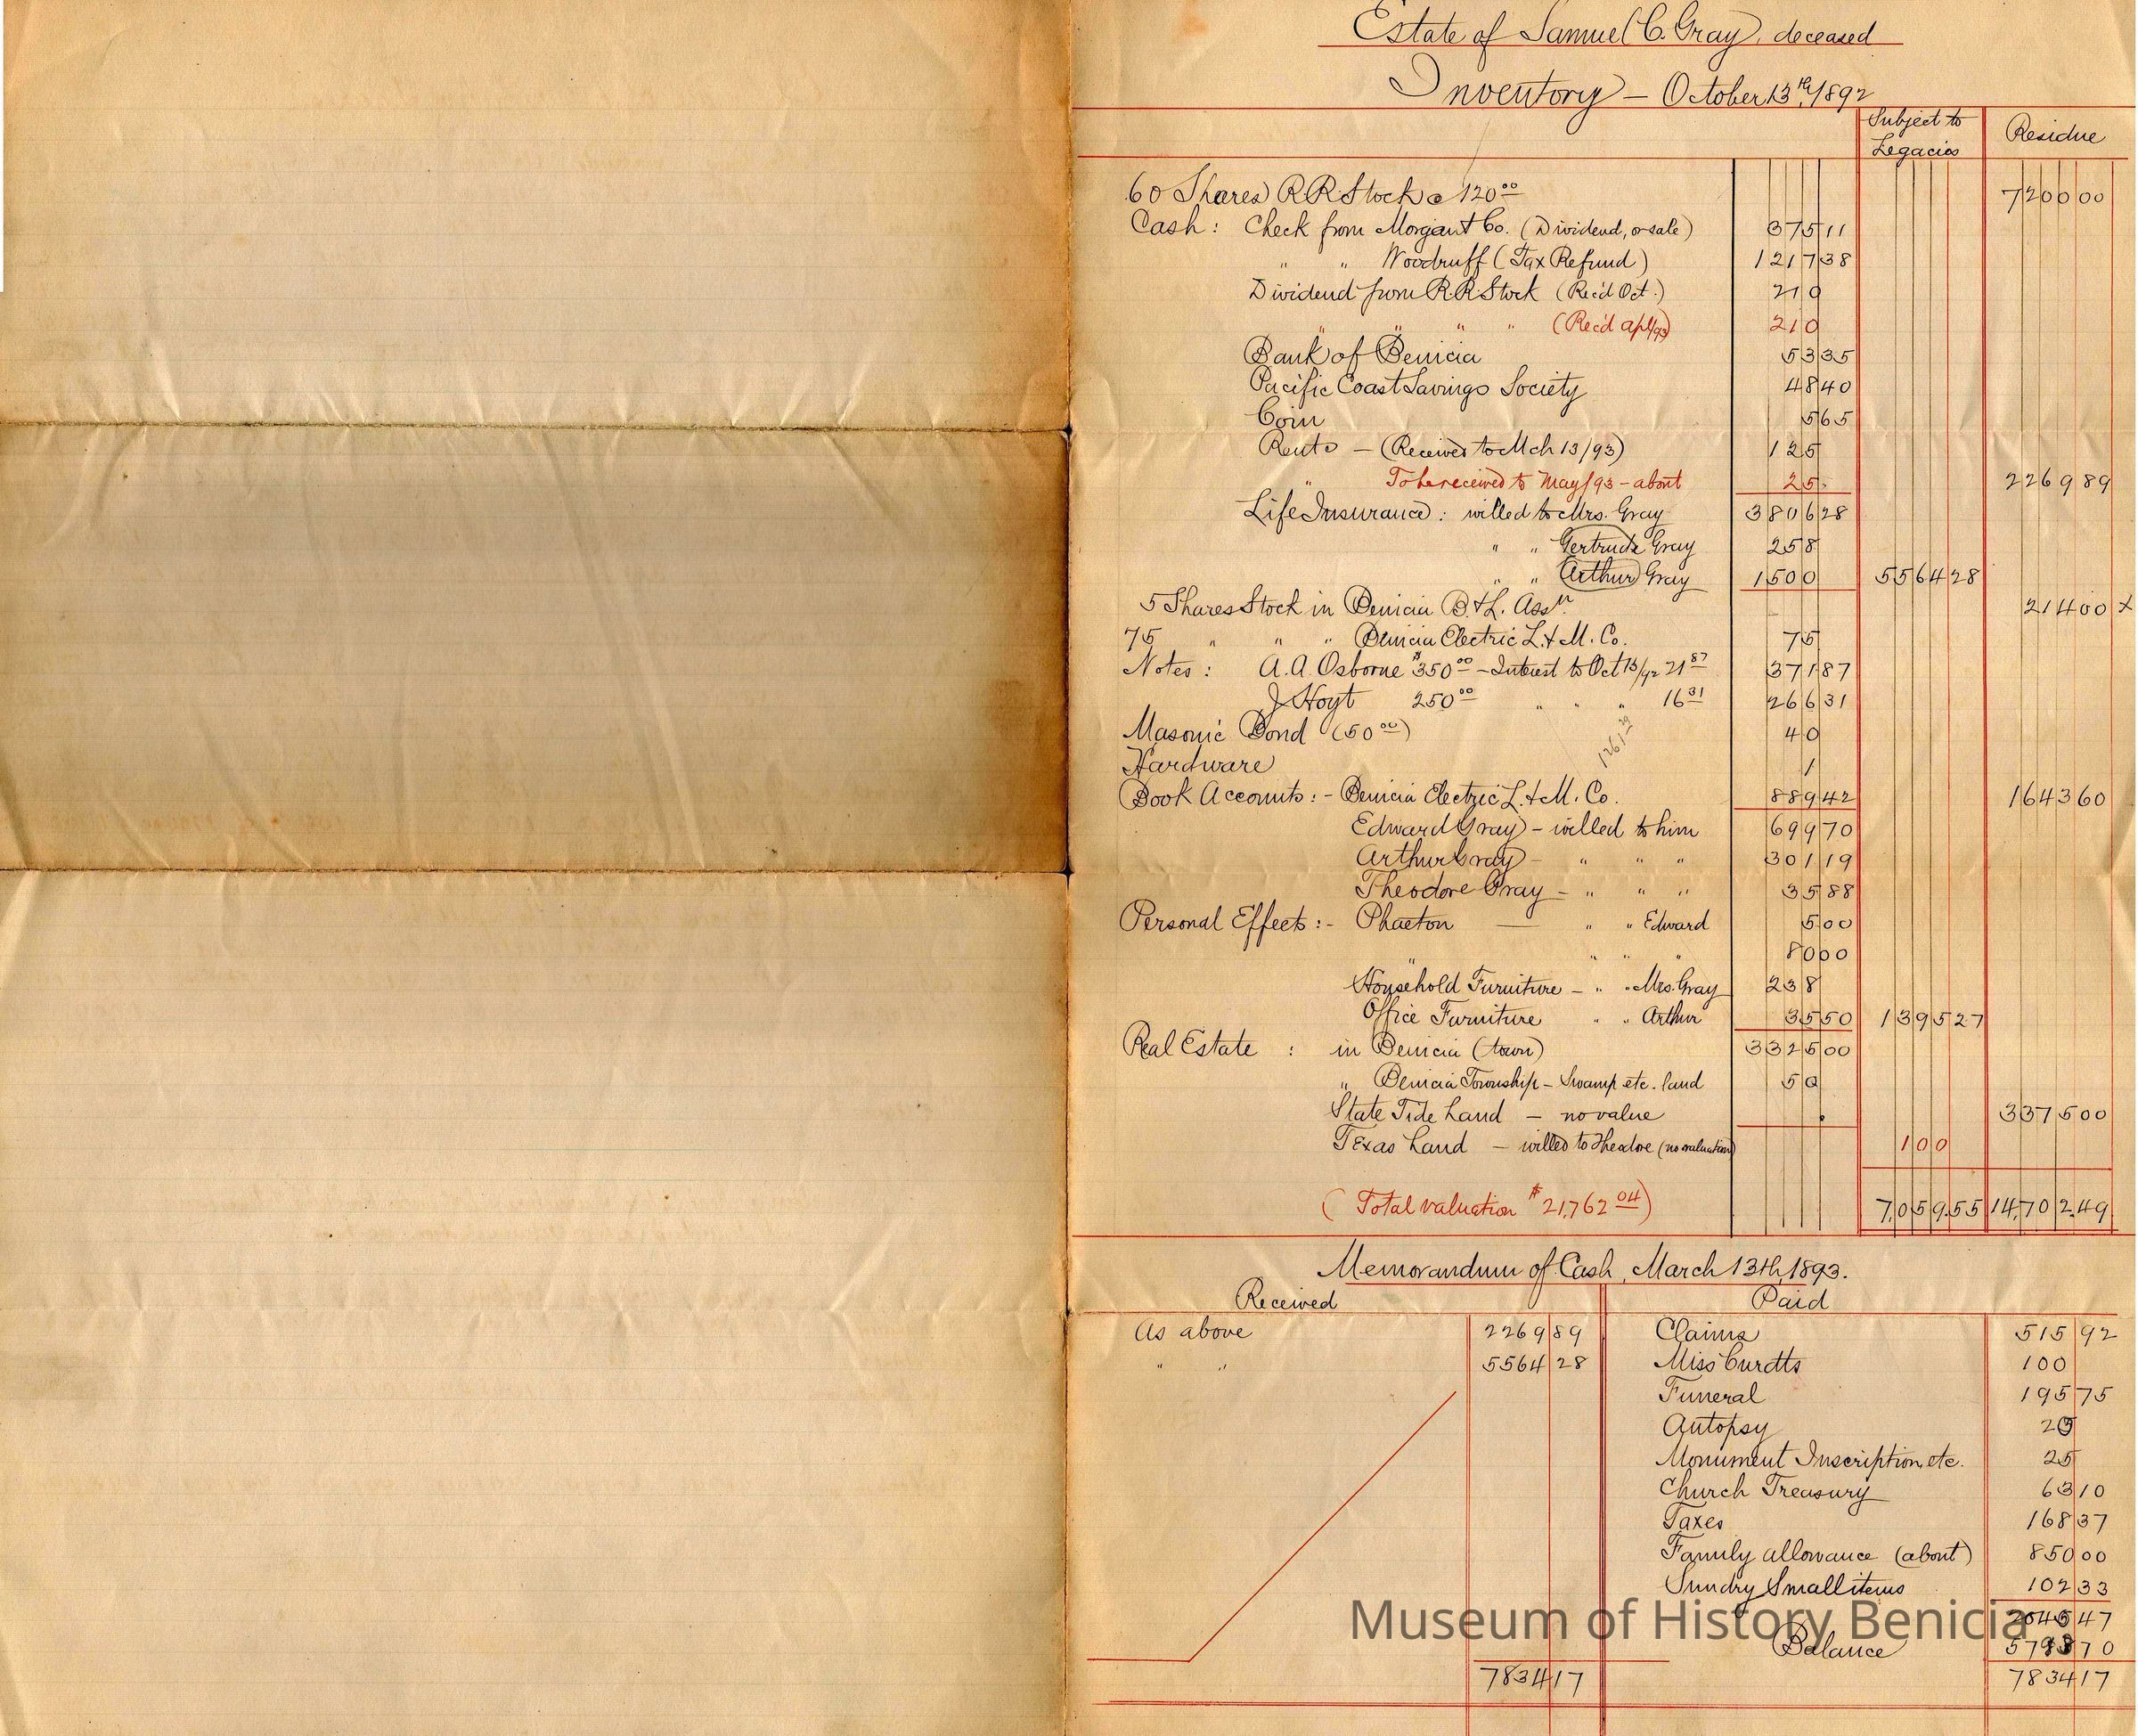 Estate of Samuel C. Gray, deceased
Inventory – October 13th, 1892
Subject to Legacies Residue
60 Shares R R Stock @ 120 00 7200 00
Cash: Check from Morgan & Co. (Dividend, or sale) 375 11
" " Woodruff (Tax Refund) 1217 38
Dividend from R.R. Stock (Rec'd Oct.) 210
" " " " (Rec'd Apl/93) 210
Bank of Benicia 53 35
Pacific Coast Savings Society 48 40
Coin 5 65
Rents – (Received to Mch 13/93) 125
" To be received to May 1/93 – about 25. 2269 89
Life Insurance: willed to Mrs. Gray 3806 28
" " Gertrude Gray 258
" " Arthur Gray 1500 5564 28
5 Shares Stock in Benicia B. & L. Assn. 214 00 x
75 " " " Benicia Electric L. & M. Co. 75
Notes: A. A. Osborne $350 00 – Interest to Oct 13/92 21 87 371 87
J Hoyt 250 00 " " " 16 31 266 31
Masonic Bond (50 00) 40
Hardware 1
Book Accounts: - Benicia Electric L. & M. Co. 889 42 1643 60
Edward Gray – willed to him 699 70
Arthur Gray – " " " 301 19
Theodore Gray – " " " 35 88
Personal Effects: - Phaeton — " " Edward 5 00
" " " " 80 00
Household Furniture – " " Mrs. Gray 238
Office Furniture " " Arthur 35 50 1395 27
Real Estate : in Benicia (town) 3325 00
" Benicia Township – Swamp etc. land 50
State Tide Land – no value 3375 00
Texas Land – willed to Theodore (no valuation) 100
(Total valuation $21,762 04) 7,059.55 14,702.49
Memorandum of Cash, March 13th, 1893.
Received Paid
As above 2269 89 Claims 515 92
" " 5564 28 Miss Curdts 100
Funeral 195 75
Autopsy
Monument Inscription, etc. 25
Church Treasury 63 10
Taxes 168 37
Family allowance (about) 850 00
Sundry Small items 102 33
2045 47
Balance
7834 17 7834 17
Museum of History Benicia